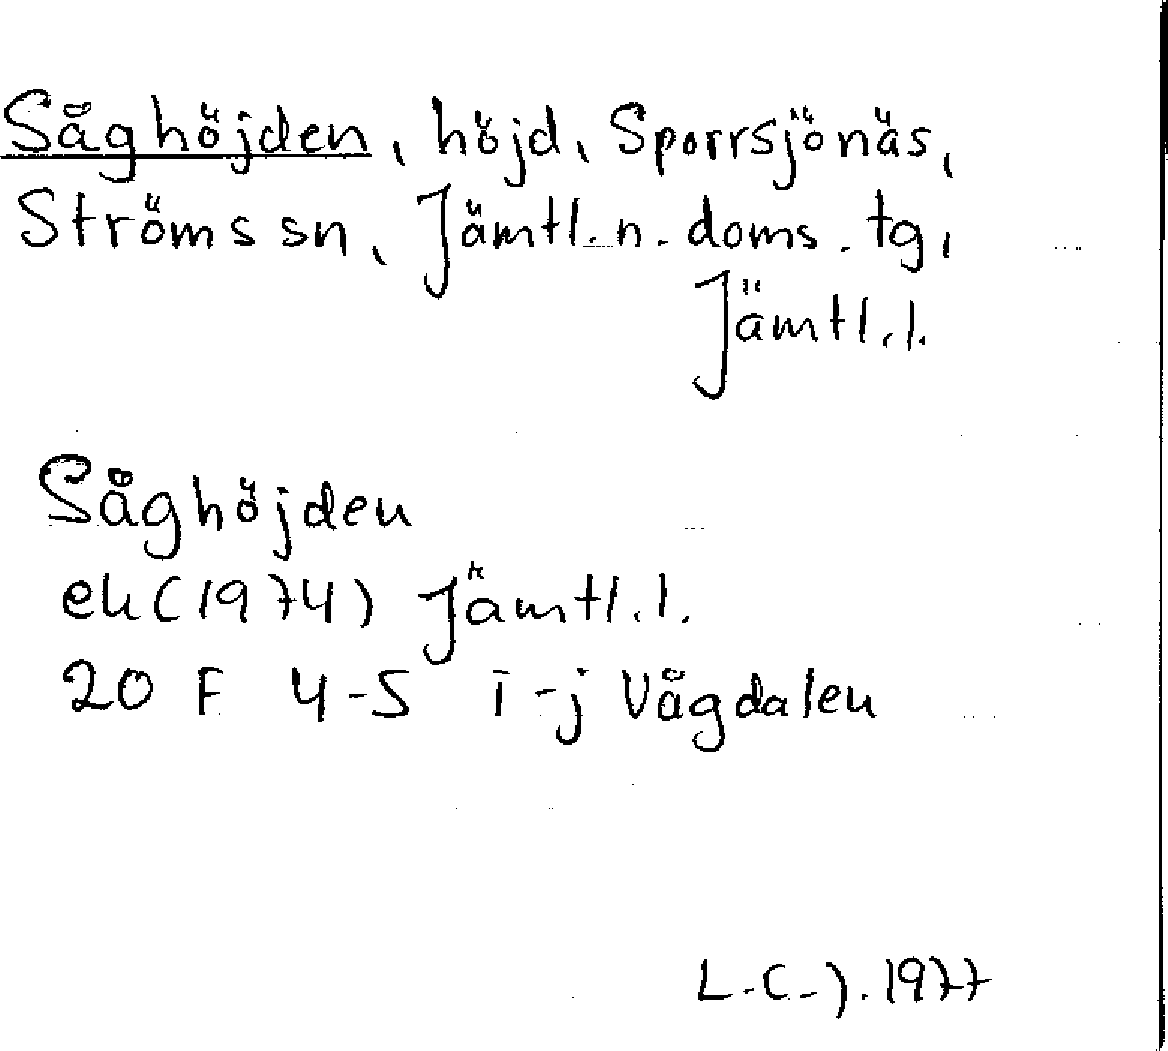 Såghöjden, höjd, Sporrsjönäs,
Ströms sn, Jämtl. n. doms. tg,
Jämtl. l.
Såghöjden
ek (1974) Jämtl. l.
20 F 4-5 i-j Vågdalen
L.C.J. 1977